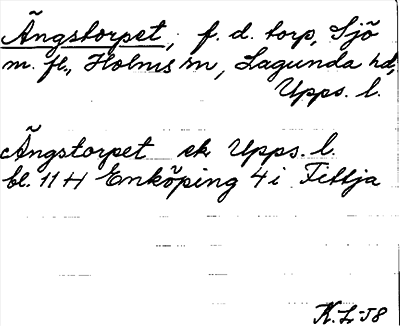 Ängstorpet, f. d. torp, Sjö
m. fl., Holms sn, Lagunda hd,
Upps. l.
Ängstorpet ek Upps. l.
bl. 11 H Enköping 4 i Fittja
K. L-58